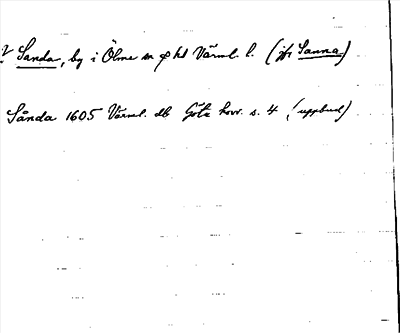 ? Sanda, by i Ölme sn o hd Värml. l. (jfr Sanna)
Sånda 1605 Värml. db Göta hovr. s. 4 (uppbud)